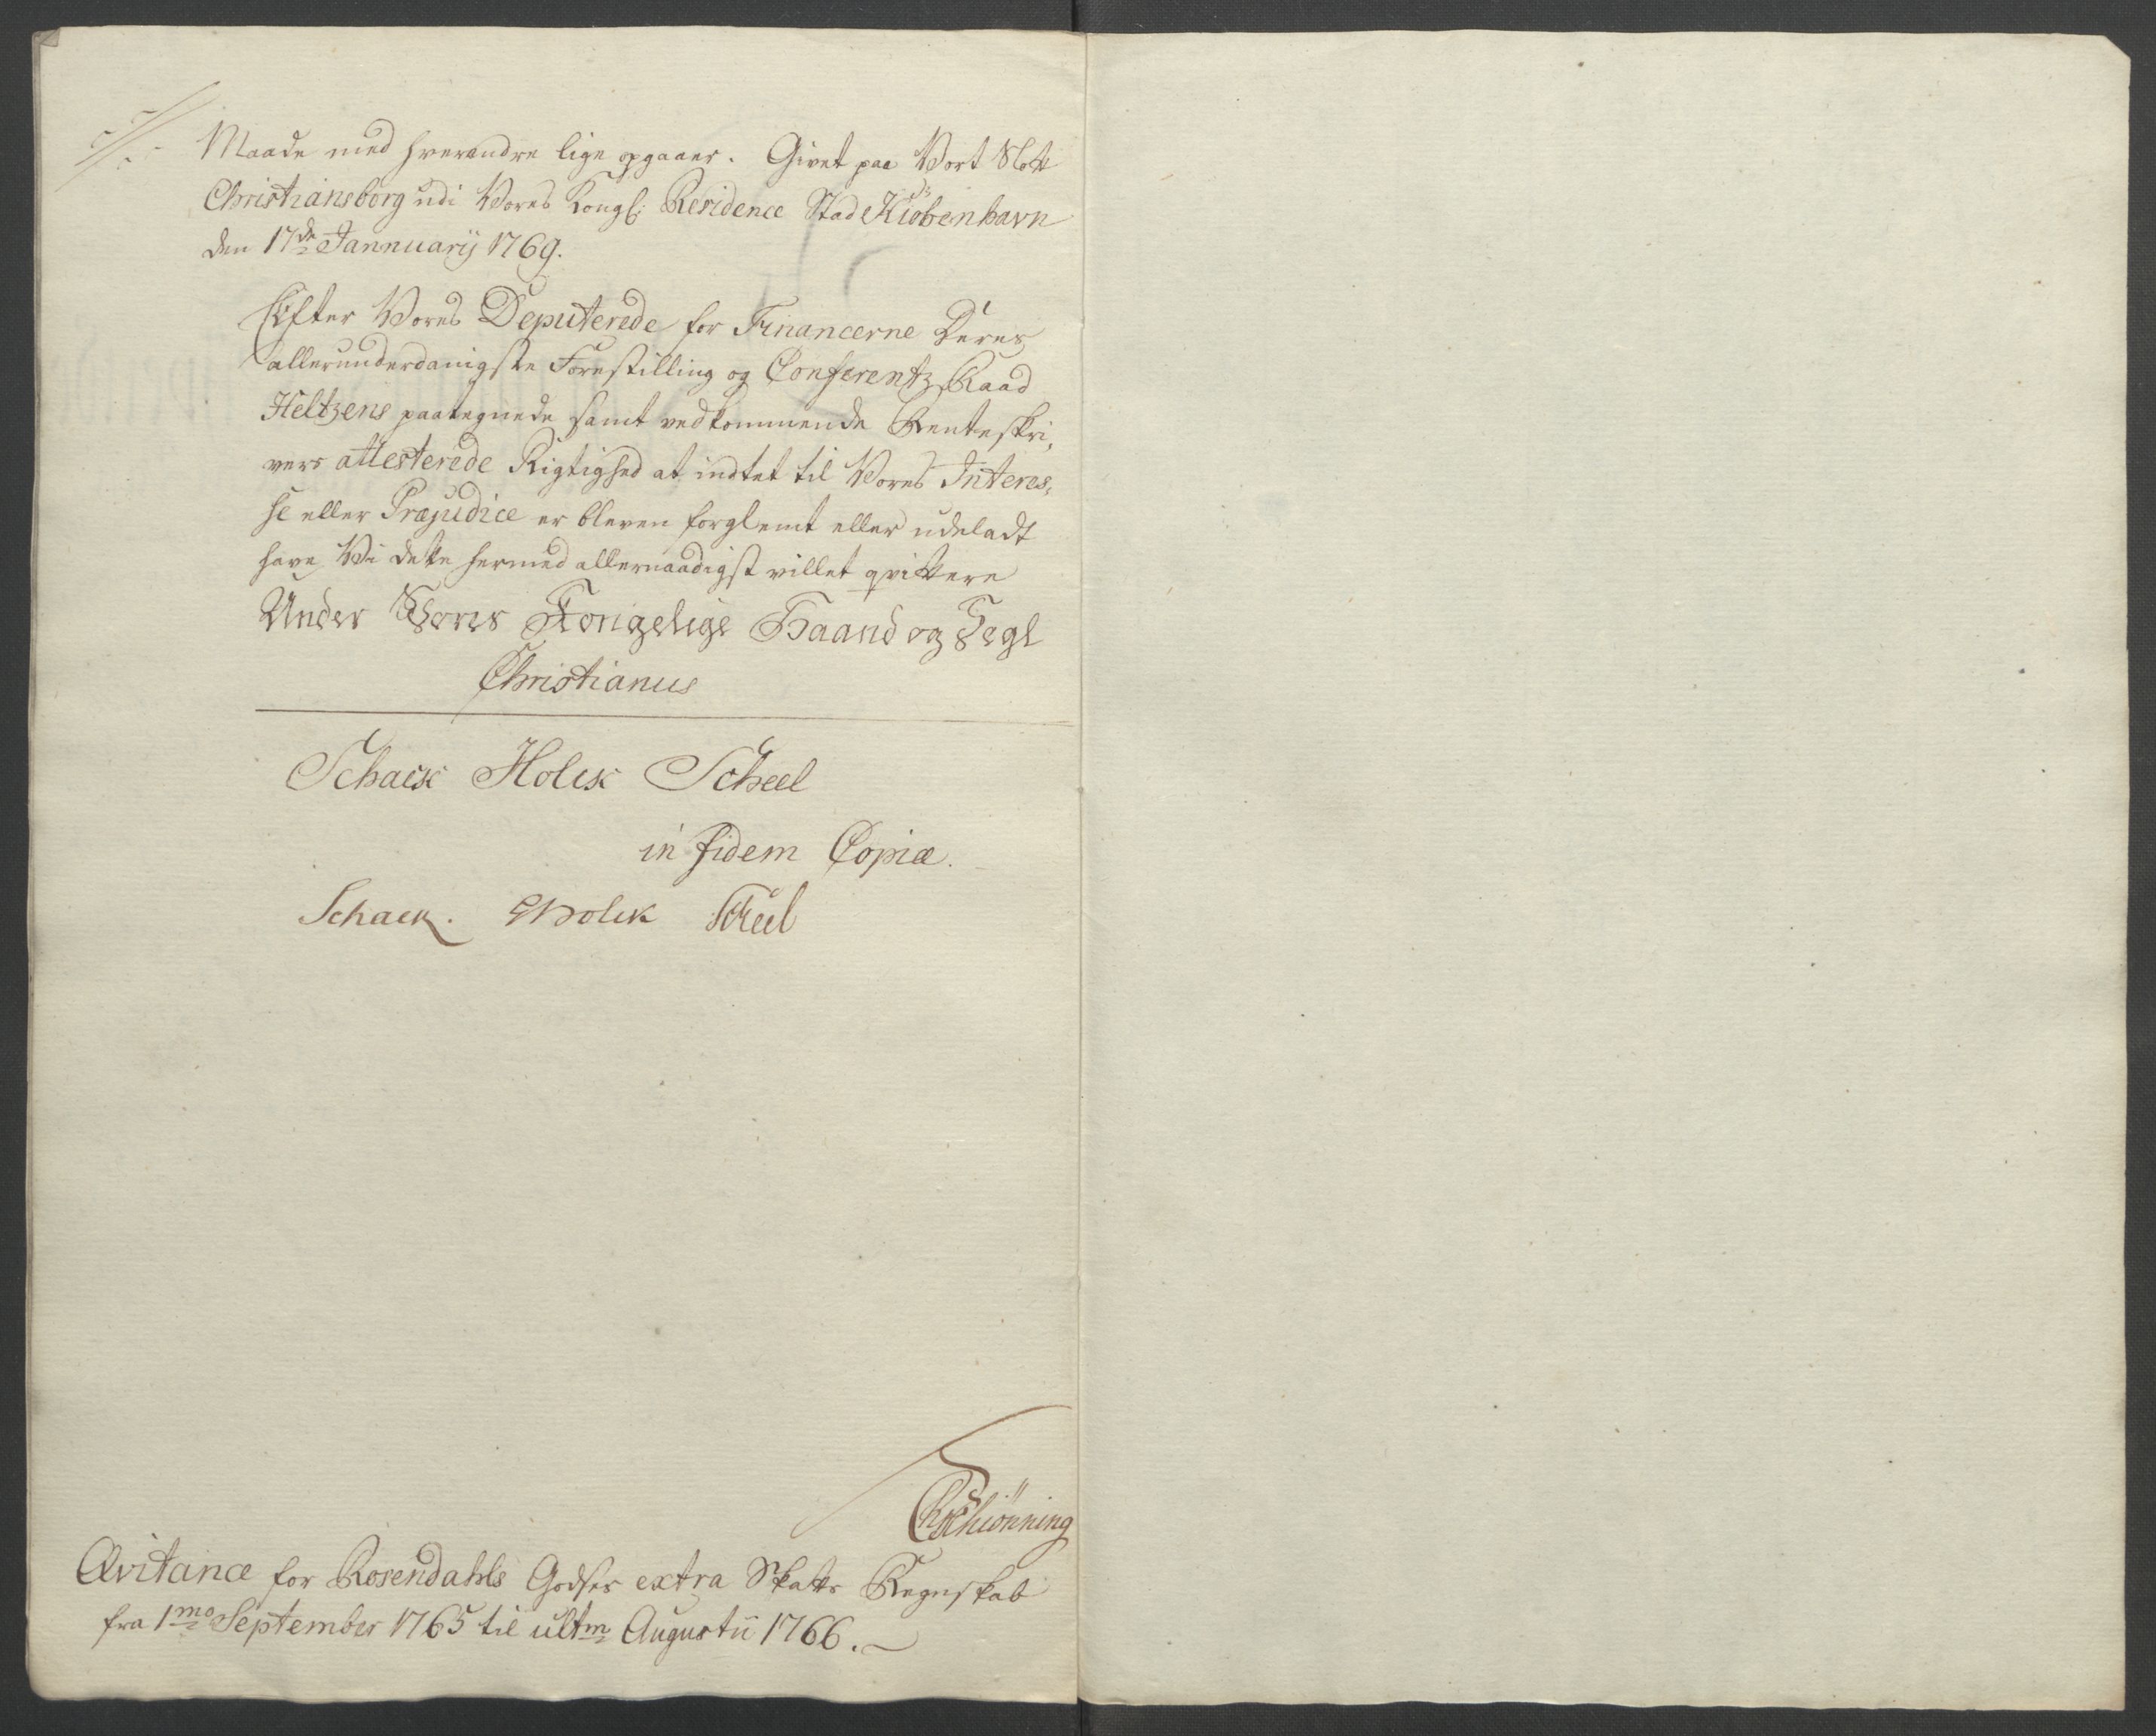 Maade med hverandre lige opgaaer. Givet paa Vort Slott
Christiansborg udi Vores Kongl: Residence Stad Kiöbenhavn
den 17de Jannuarij 1769.
Efter Vores Deputerede for Financerne Deres
allerunderdanigste Forestilling og Conferentz Raad
Heltzens paategnede samt vedkommende Renteskri,
vers attesterede Rigtighed at indtet til Vores Interes,
se eller Præjudice er bleven forglemt eller udeladt
have Vi dette hermed allernaadigst villet qvittere
Under Vores Kongelige Haand og Segl
Christianus
Schack Holck Scheel
in fidem Copiæ.
Schack. Holck Scheel
Schiönning
Qvitance for Rosendahls Godses extra Skatts Regnskab
fra 1mo September 1765 til ultm Augustii 1766.